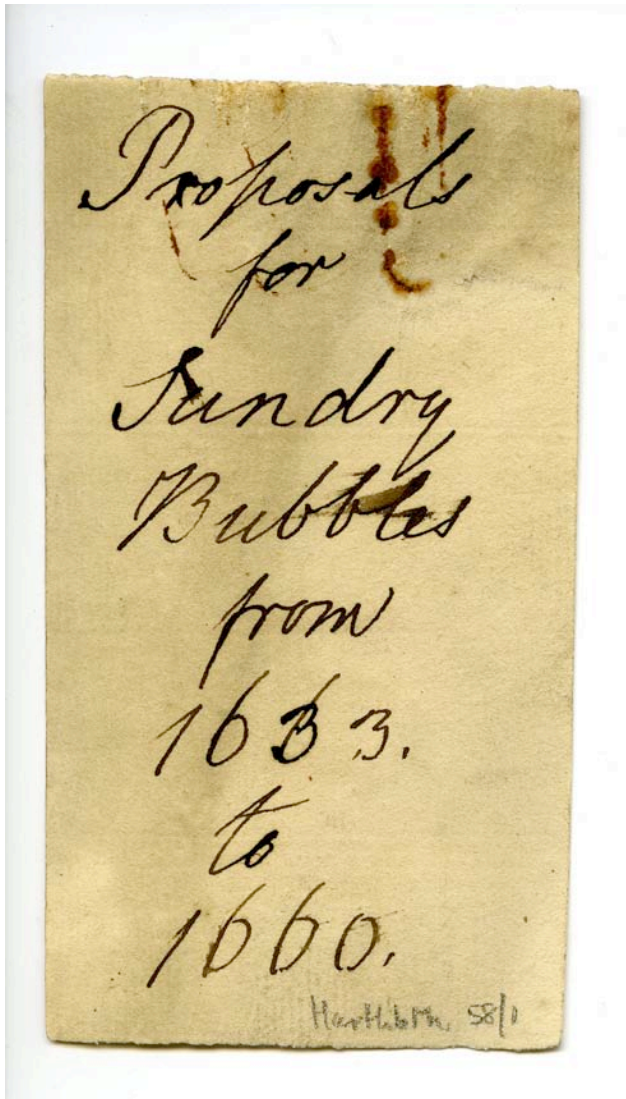 Proposals
for
Sundry
Bubbles
from
1633.
to
1660.
58/1